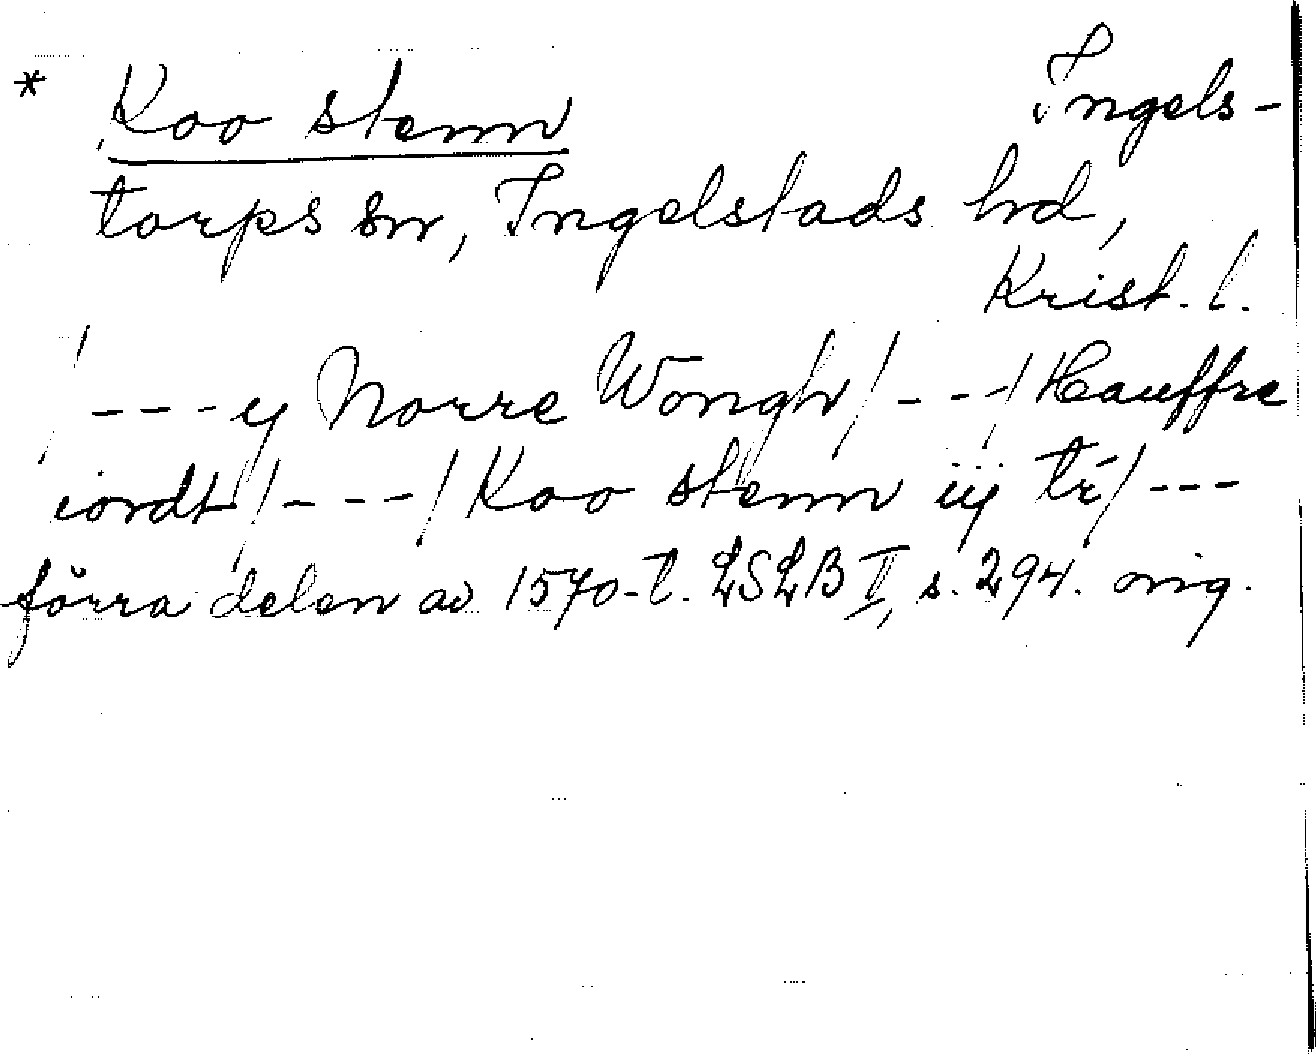 * Koo stenn Ingels-
torps sn, Ingelstads hd,
Krist. l.
/---y Norre Wongh/---/Hauffre
iordt/---/Koo stenn iij tr/---
förra delen av 1570-t. LSLB II, s. 294. orig.